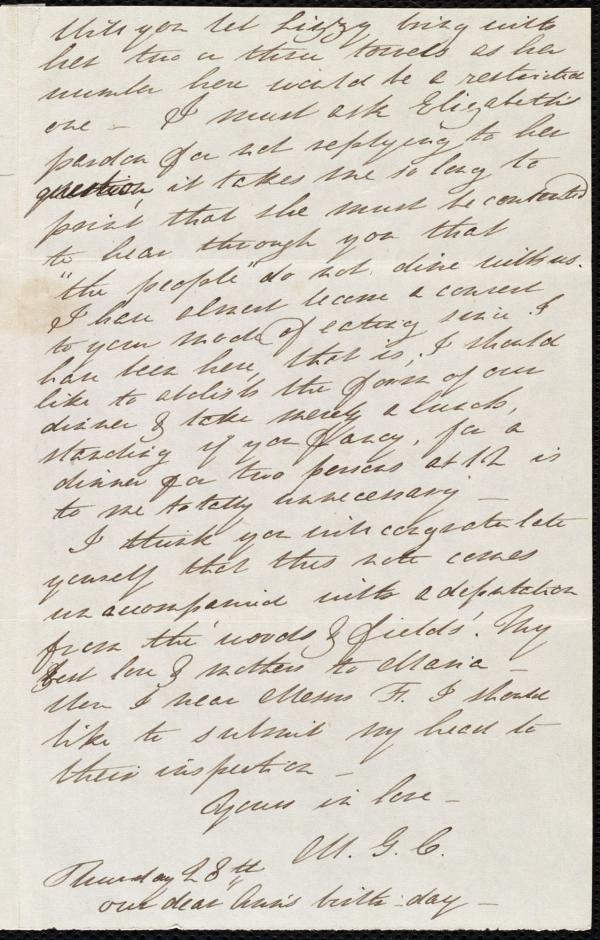 Will you let Lizzy bring with
her two or three towels as her
number here would be a restricted
one – I must ask Elizabeth's
pardon for not replying to her
question, it takes me so long to
print that she must be contented
to hear through you that
"the people" do not dine with us.
I have almost become a convert
to your mode of eating since I
have been here, that is, I should
like to abolish the form of our
dinner & take merely a lunch,
standing if you fancy, for a
dinner for two persons at 12 is
to me totally unnecessary –
I think you will congratulate
yourself that this note comes
unaccompanied with a deputation
from the 'woods & fields'. My
best love & mothers to Maria –
Were I near Messrs F. I should
like to submit my head to
their inspection –
Yours in love –
M. G. C.
Thursday 28th
our dear Ann's birth-day –